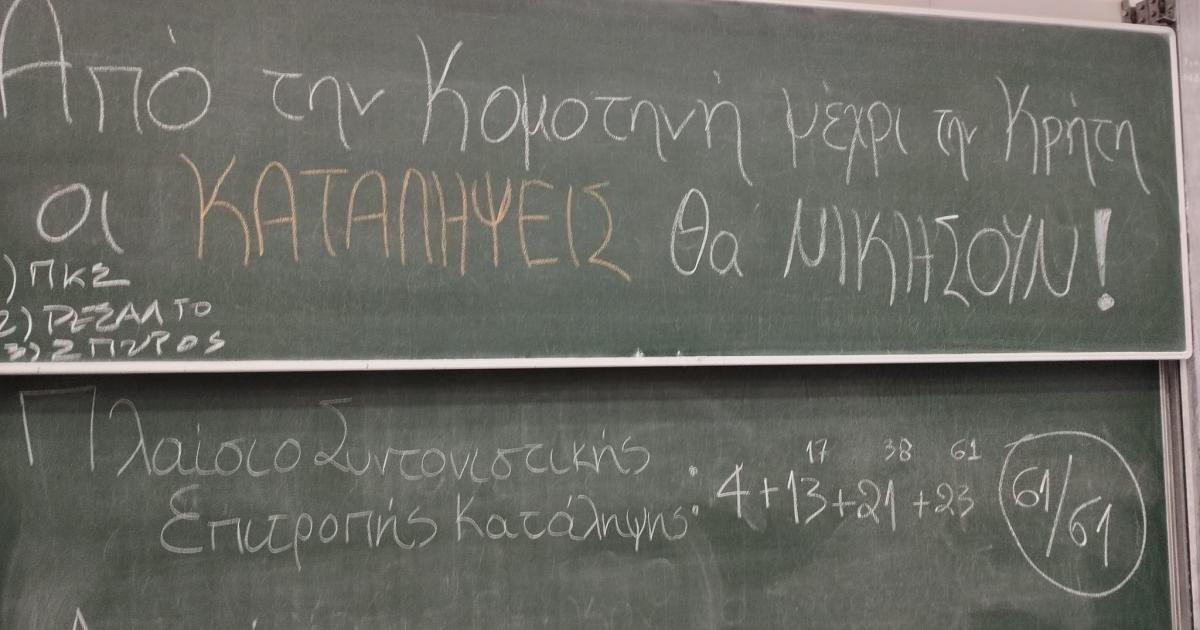 Από την Κομοτηνή μέχρι την Κρήτη
οι ΚΑΤΑΛΗΨΕΙΣ θα ΝΙΚΗΣΟΥΝ!
1) ΠΚΣ
2) ΡΕΣΑΛΤΟ
3) ΣΠΥΡΟΣ
Πλαίσιο Συντονιστικής
17 38 61
Επιτροπής Κατάληψης: 4+13+21+23 61/61